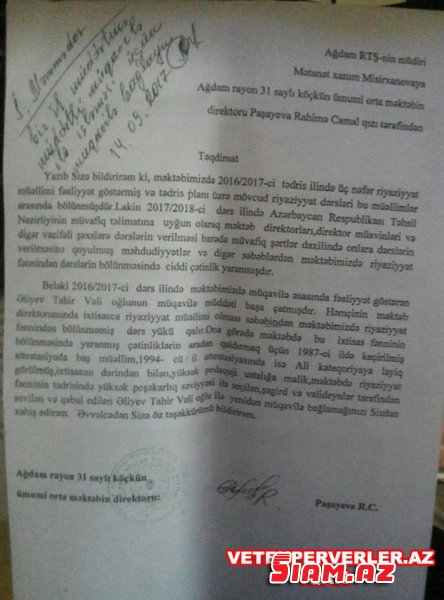 Ağdam RTŞ-nin müdiri
Mətanət xanım Misirxanovaya
Ağdam rayon 31 saylı köçkün ümumi orta məktəbin
direktoru Paşayeva Rahimə Camal qızı tərəfindən
İ. Məmmədov
Bir il müddətinə
müddətli müqavilə
müqavilə bağlayın
14.09.2017
Təqdimat
Yazıb Sizə bildirirəm ki, məktəbimizdə 2016/2017-ci tədris ilində üç nəfər riyaziyyat
müəllimi fəaliyyət göstərmiş və tədris planı üzrə mövcud riyaziyyat dərsləri bu müəllimlər
arasında bölünmüşdür.Lakin 2017/2018-ci dərs ilində Azərbaycan Respublikası Təhsil
Nazirliyinin müvafiq təlimatına uyğun olaraq məktəb direktorları,direktor müavinləri və
digər vəzifəli şəxslərə dərslərin verilməsi barədə müvafiq şərtlər daxilində onlara dərslərin
verilməsinə qoyulmuş məhdudiyyətlər və digər səbəblərdən məktəbimizdə riyaziyyat
fənnindən dərslərin bölünməsində ciddi çətinlik yaranmışdır.
Beləki 2016/2017-ci dərs ilində məktəbimizdə müqavilə əsasında fəaliyyət göstərən
Əliyev Tahir Vəli oğlunun müqavilə müddəti başa çatmışdır. Həmçinin məktəb
direktorununda ixtisasca riyaziyyat müəllimi olması səbəbindən məktəbimizdə riyaziyyat
fənnindən bölünməmiş dərs yükü qalır.Ona görədə məktəbdə bu ixtisas fənnin
bölünməsində yaranmış çətinliklərin aradan qaldırmaq üçün 1987-ci ildə keçirilmiş
attestasiyada baş müəllim,1994- cü il attestasiyasında isə Ali kateqoriyaya layiq
görülmüş,ixtisasını dərindən bilən,yüksək pedaqoji ustalığa malik,məktəbdə riyaziyyat
fənninin tədrisində yüksək peşəkarlıq səviyyəsi ilə seçilən,şagird və valideynlər tərəfindən
sevilən və qəbul edilən Əliyev Tahir Vəli oğlu ilə yenidən müqavilə bağlamağınızı Sizdən
xahiş edirəm. Əvvəlcədən Sizə öz təşəkkürümü bildirirəm.
Ağdam rayon 31 saylı köçkün
ümumi orta məktəbin direktoru:
Paşayeva R.C.
VETENPERVERLER.AZ
SIAM.AZ